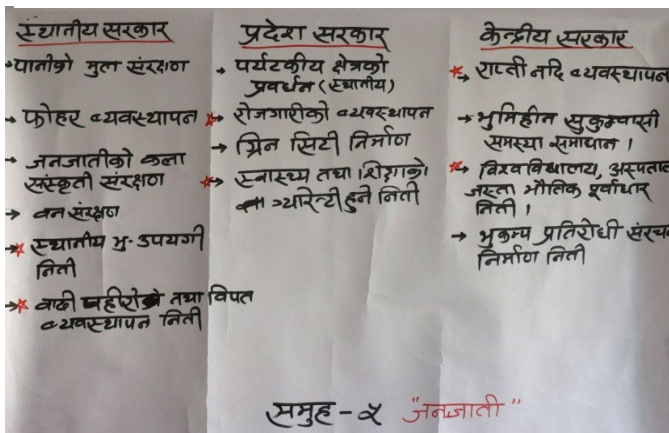 स्थानीय सरकार
पानीको मुल संरक्षण
→ फोहर व्यवस्थापन
→ जनजातीको कला
संस्कृती संरक्षण
→ वन संरक्षण
→ स्थानीय भु-उपयगी
निती
→ वाढी पहीरो तथा विपत
व्यवस्थापन निती
प्रदेश सरकार
→ पर्यटकीय क्षेत्रको
प्रवर्धन (स्थानीय)
→ रोजगारीको व्यवस्थापन
→ ग्रिन सिटी निर्माण
→ स्वास्थ्य तथा शिक्षाको
ग्यारेन्टी हुने निती
केन्द्रीय सरकार
→ राप्ती नदि व्यवस्थापन
→ भुमिहीन सुकुम्वासी
समस्या समाधान ।
→ विश्वविद्यालय, अस्पताल
जस्ता भौतिक पूर्वाधार
निती ।
→ भुकम्प प्रतिरोधी
निर्माण निती
समुह - २ "जनजाती"